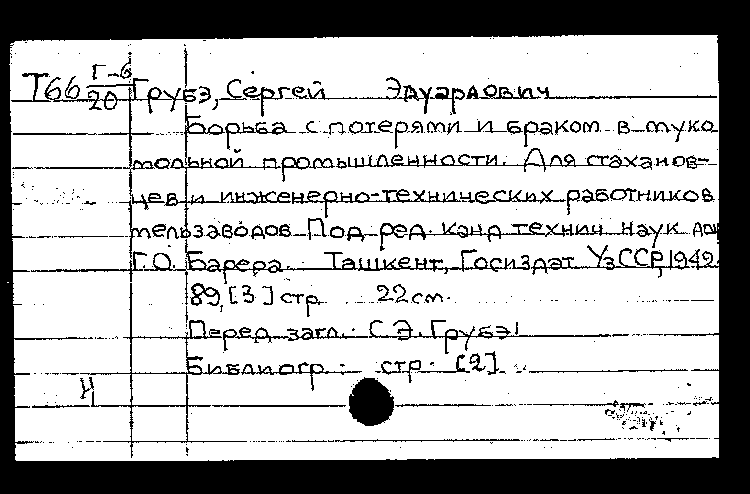 Т66 Г-6/20 Грубэ, Сергей Эдуардович
Борьба с потерями и браком в муко
мольной промышленности. Для стаханов-
цев и инженерно-технических работников
мельзаводов Под ред. канд технич наук доц
Г.О. Барера. Ташкент, Госиздат УзССР, 1949.
89, [3] стр 22 см.
Перед загл.: С.Э. Грубэ
Библиогр.: стр. [2]
Ч